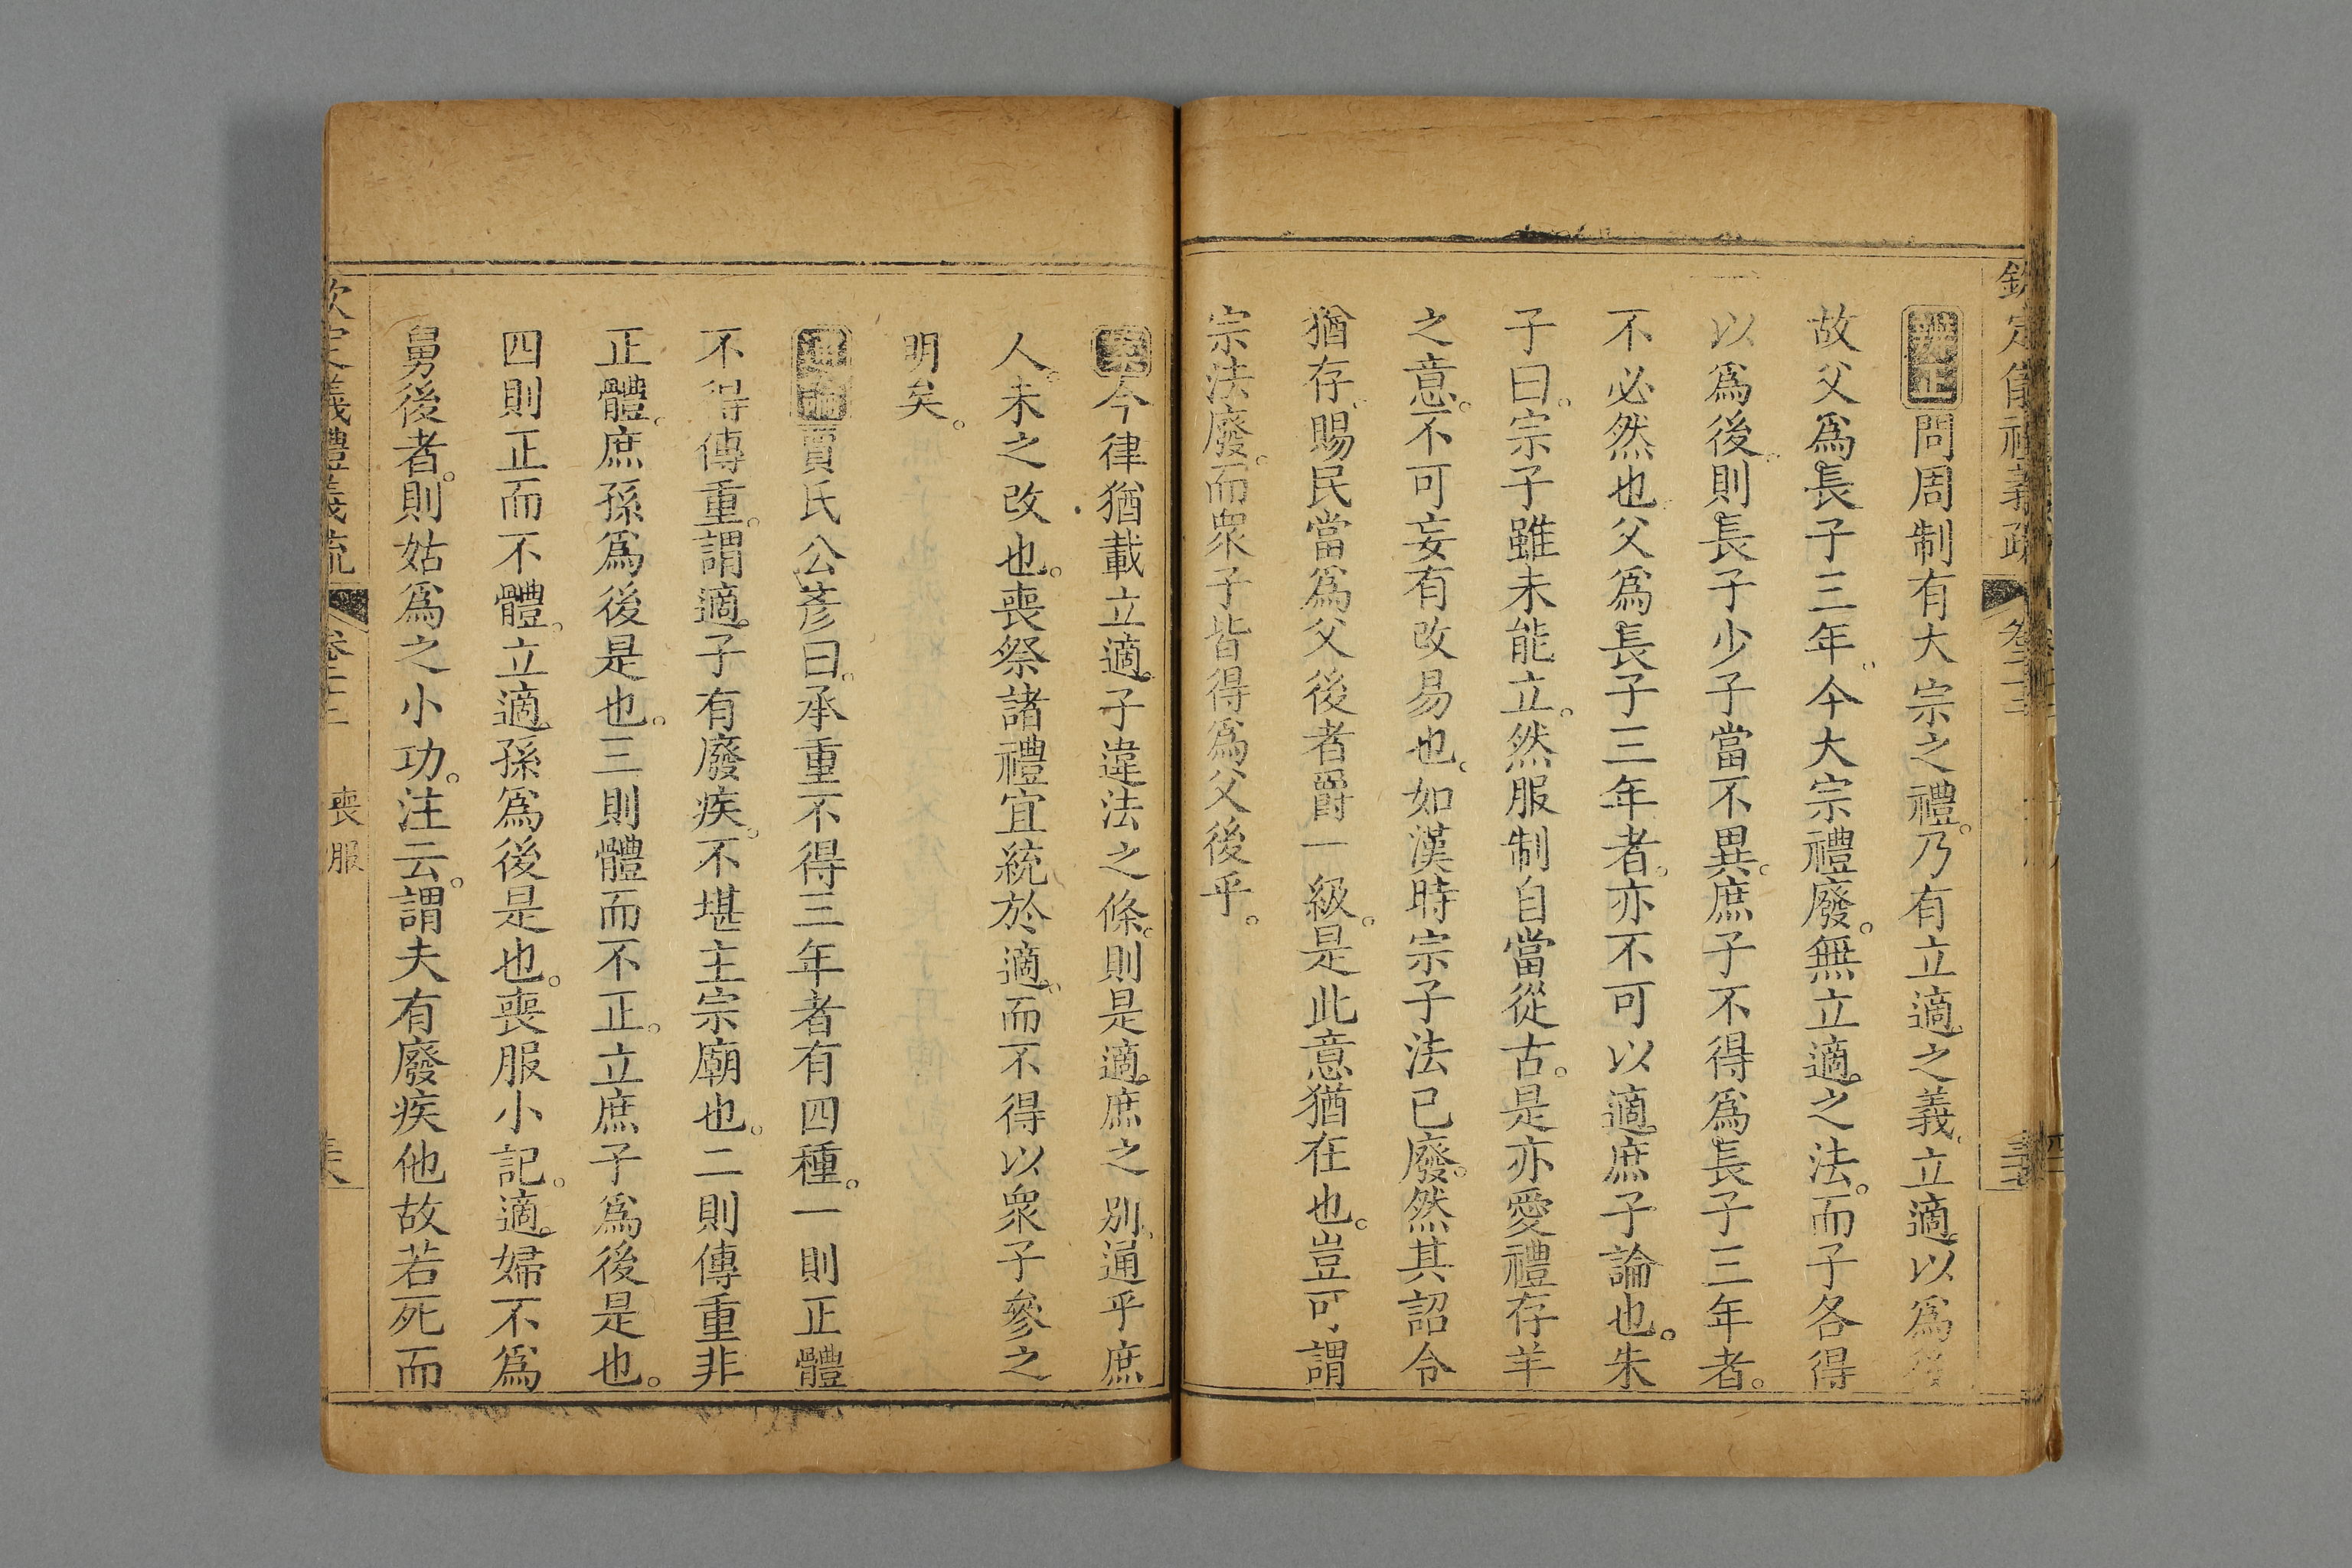 辨正問周制有大宗之禮。乃有立適之義、立適以爲後
故父爲長子三年。今大宗禮廢。無立適之法。而子各得
以爲後。則長子少子當不異。庶子不得爲長子三年者。
不必然也父爲長子三年者。亦不可以適庶子論也。朱
子曰。宗子雖未能立。然服制自當從古。是亦愛禮存羊
之意。不可妄有改易也。如漢時宗子法已廢。然其詔令
猶存。賜民當爲父後者爵一級。是此意猶在也。豈可謂
宗法廢。而衆子皆得爲父後乎。
案今律猶載立適子違法之條。則是適庶之別、通乎庶
人。未之改也。喪祭諸禮宜統於適。而不得以衆子參之
明矣。
通論賈氏公彥曰。承重不得三年者有四種。一則正體
不得傳重。謂適子有廢疾。不堪主宗廟也。二則傳重非
正體。庶孫爲後是也。三則體而不正。立庶子爲後是也。
四則正而不體。立適孫爲後是也。喪服小記。適婦不爲
舅後者。則姑爲之小功。注云。謂夫有廢疾他故若死而
欽定儀禮義疏 卷二十三 喪服